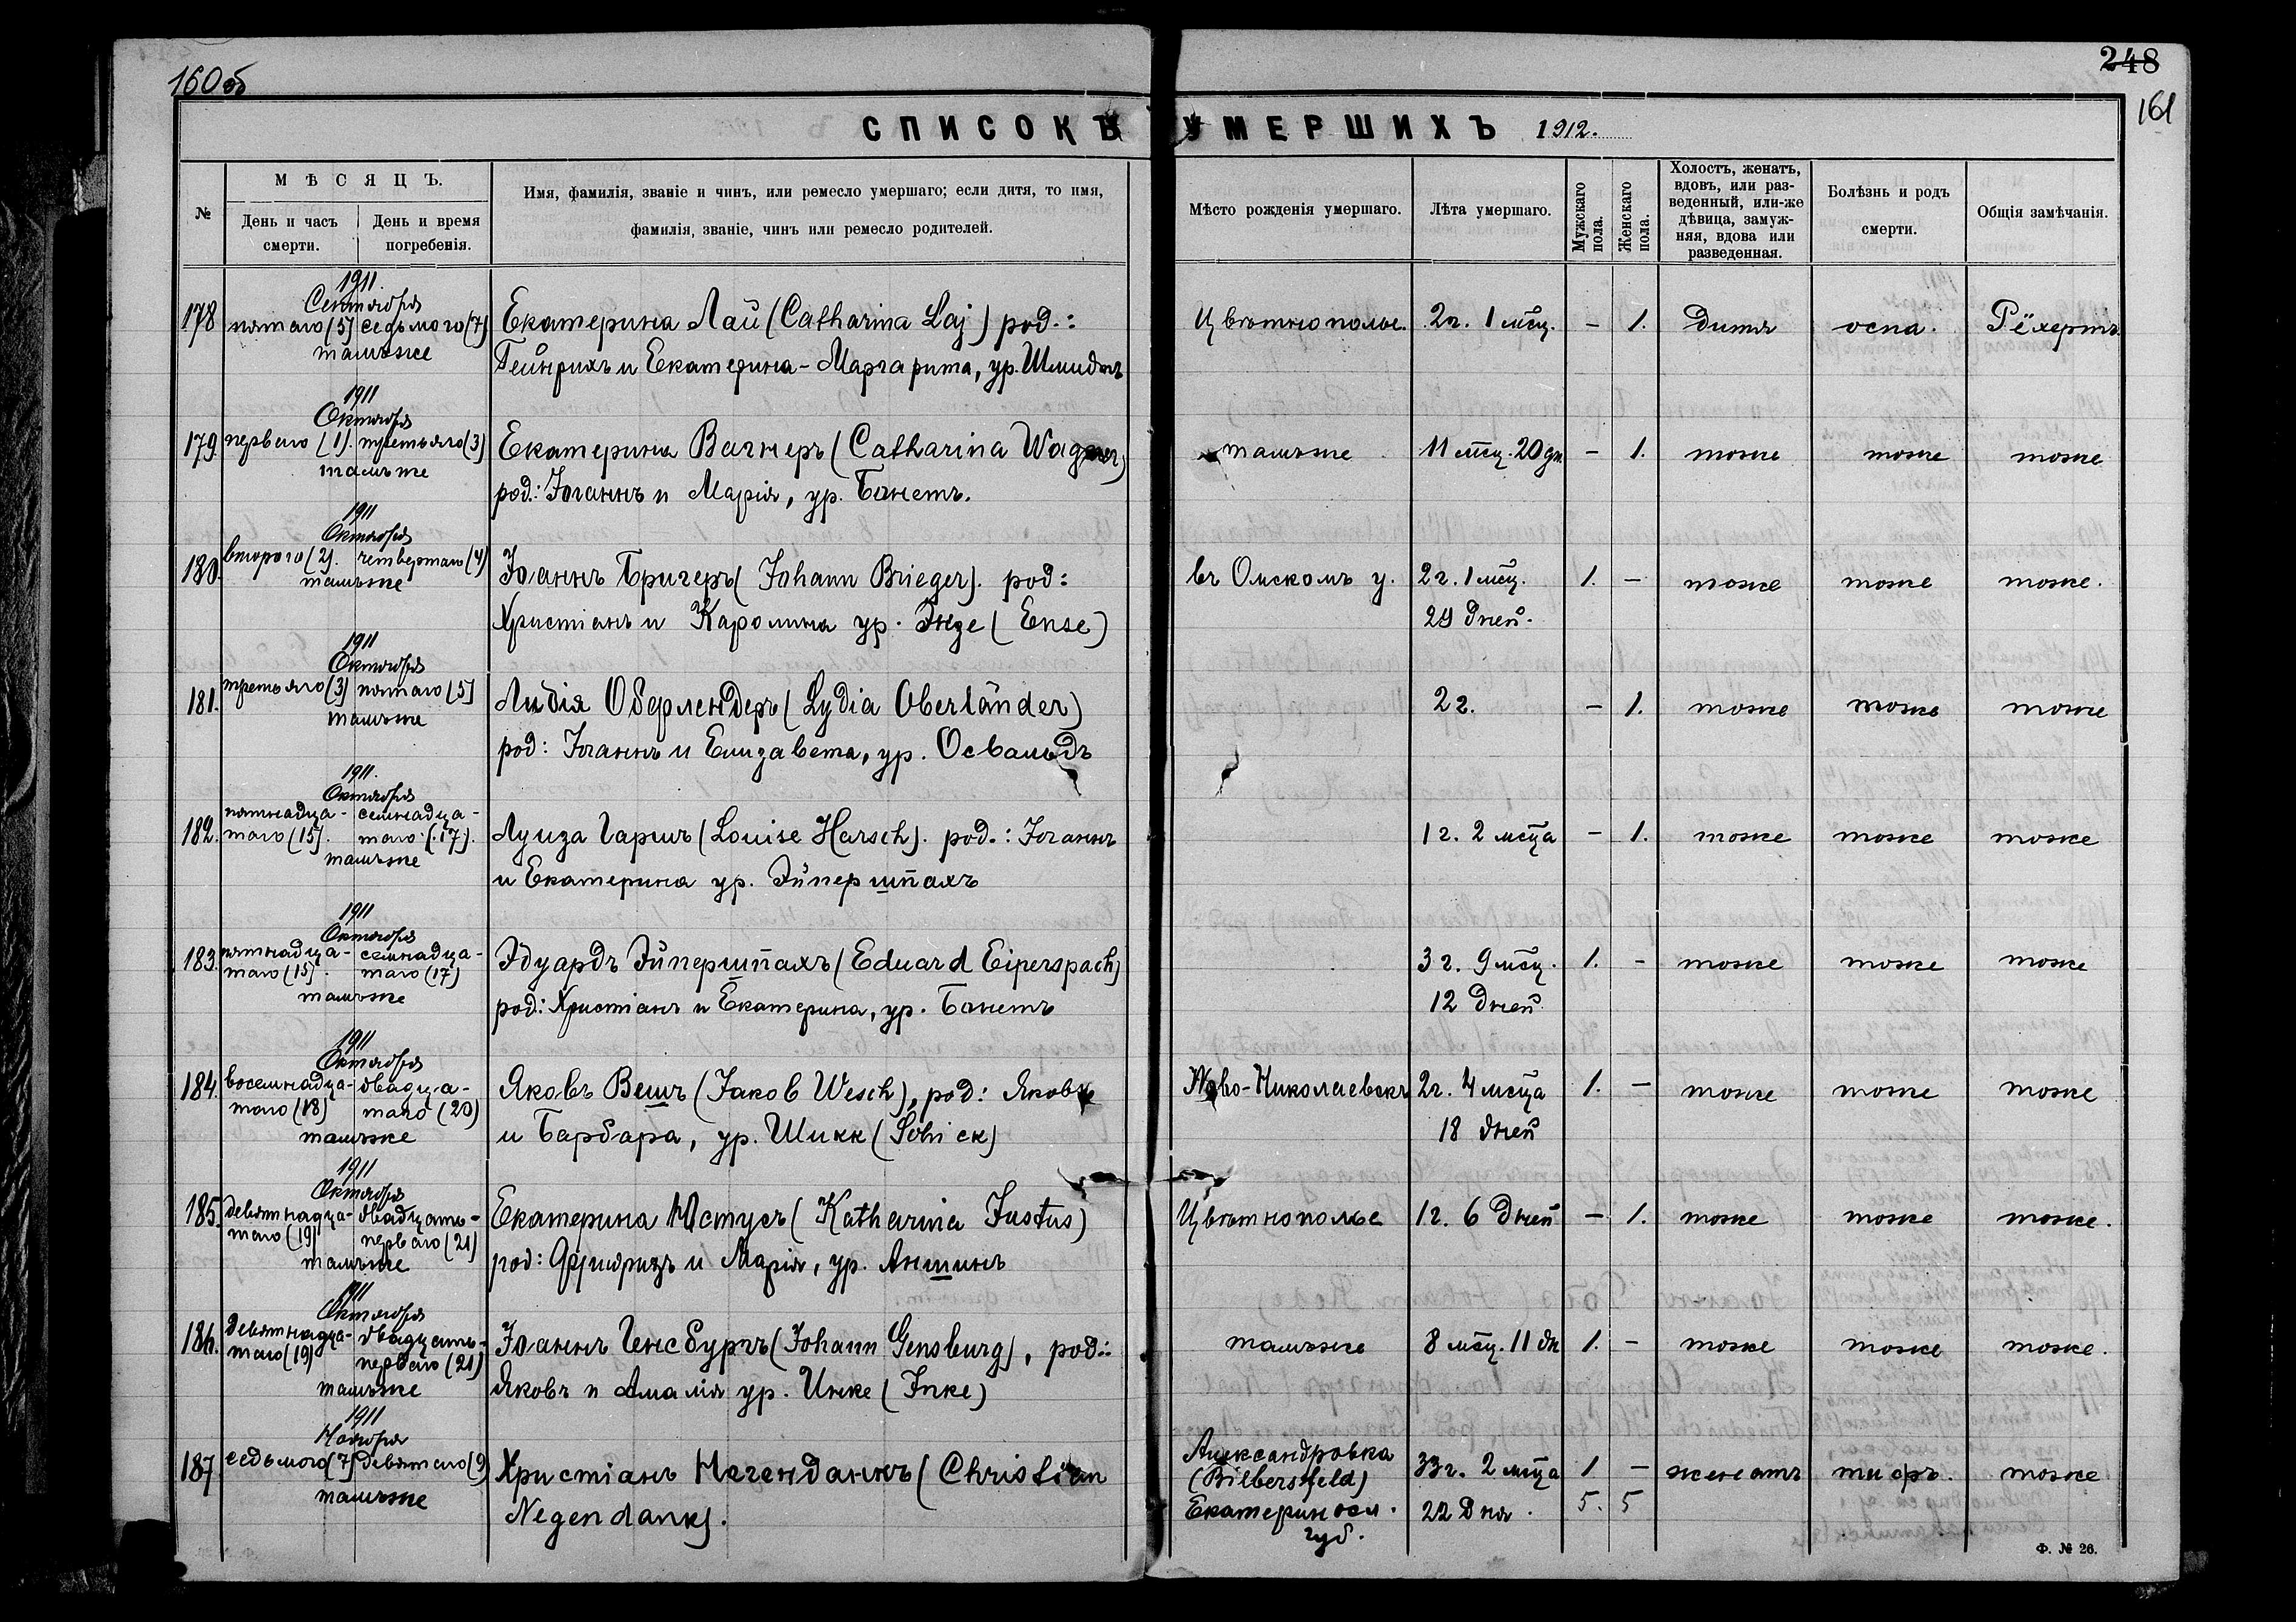 160об
248
161
СПИСОКЪ УМЕРШИХЪ 1912.
№
МѢСЯЦЪ.
День и часъ смерти.
День и время погребенія.
Имя, фамилія, званіе и чинъ, или ремесло умершаго; если дитя, то имя,
фамилія, званіе, чинъ или ремесло родителей.
Мѣсто рожденія умершаго.
Лѣта умершаго.
Мужскаго пола.
Женскаго пола.
Холостъ, женатъ,
вдовъ, или раз-
веденный, или-же
дѣвица, замуж-
няя, вдова или
разведенная.
Болѣзнь и родъ
смерти.
Общія замѣчанія.
1911.
Сентября
178 пятаго (5) седьмого (7) Екатерина Лай (Catharina Laj) род.: Цвѣтнополье. 2г. 1 мѣц. – 1. дитя оспа. Рёхертъ
тамъже
Гейнрихъ и Екатерина-Маргарита, ур. Шмидтъ
1911
Октября
179. перваго (1). третьяго (3) Екатерина Вагнеръ (Catharina Wagner) тамъже 11 мѣц. 20 дн. – 1. тоже тоже тоже
тамъже
род.: Іоганнъ и Марія, ур. Банетъ.
1911
Октября
180. второго (2). четвертаго (4) Іоаннъ Бригеръ (Johann Brieger). род: въ Омскомъ у. 2г. 1 мѣц. 1. – тоже тоже тоже.
тамъже
Христіанъ и Каролина ур. Энзе (Ense) 29 дней.
1911
Октября
181. третьяго (3) пятаго (5) Лидія Оберлендеръ (Lydia Oberländer) 2г. – 1. тоже тоже тоже
тамъже
род: Іоганнъ и Елизавета, ур. Освальдъ
1911.
Октября
182. пятнадца- семнадца-
таго (15). таго (17). Луиза Гаршъ (Louise Harsch). род.: Іоганнъ 1г. 2 мѣца – 1. тоже тоже тоже
тамъже
и Екатерина ур. Эйпершпахъ
1911
Октября
183. пятнадца- семнадца-
таго (15) таго (17) Эдуардъ Эйпершпахъ (Eduard Eiperspach) 3г. 9 мѣц. 1. – тоже тоже тоже
тамъже
род: Христіанъ и Екатерина, ур. Банетъ 12 дней.
1911
Октября
184. восемнадца- двадца-
таго (18) таго (20) Яковъ Вешъ (Jakob Wesch), род: Яковъ Ново-Николаевскъ 2г. 4 мѣца 1. – тоже тоже тоже
тамъже
и Барбара, ур. Шикк (Schick) 18 дней
1911
Октября
185. девятнадца- двадцать-
таго (19) перваго (21) Екатерина Юстусъ (Katharina Justus) Цвѣтнополье 1г. 6 дней – 1. тоже тоже тоже.
тамъже
род: Фридрихъ и Марія, ур. Аншинъ
1911
Октября
186. девятнадца- двадцать-
таго (19) перваго (21) Іоаннъ Генсбургъ (Johann Gensburg), род: тамъже 8 мѣц. 11 дн 1. – тоже тоже тоже.
тамъже
Яковъ и Амалія ур. Инке (Inke)
1911
Ноября
187. седьмого (7) девятаго (9) Христіанъ Негенданкъ (Christian Александровка 33г. 2 мѣца 1 – женатъ тифъ. тоже
тамъже
Negendank). (Bilbersfeld)
Екатериносл. 22 дня. 5. 5
губ.
Ф. № 26.